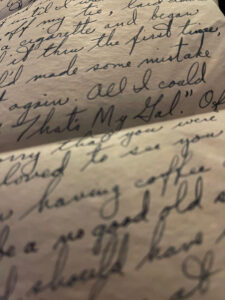 off my tie, laid down
a cigarette and began
it thru the first time,
I'd made some mistake
again. All I could
"That's My Gal." Of
sorry that you were
loved to see you
having coffee
be a no good old
should have